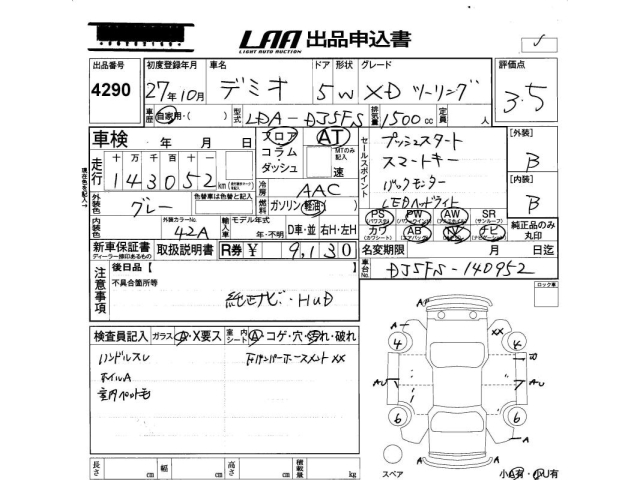 LAA 出品申込書
LIGHT AUTO AUCTION
出品番号 初度登録年月 車名 ドア 形状 グレード 評価点
4290 27年10月 デミオ 5 W XD ツーリング 3.5
車歴 自家用・( ) 型式 LDA-DJ5FS 排気量 1500cc 定員 人
車検 年 月 日 フロア AT セールスポイント プッシュスタート [外装]
コラム MTのみ記入 スマートキー B
走行 十 万 千 百 十 一 ダッシュ 速 バックモニター [内装]
1 4 3 0 5 2 km 冷房 AAC LEDヘッドライト B
外装色 グレー 色替車は色替と記入 燃料 ガソリン・軽油・( )
PS PW AW SR 純正品のみ丸印
(パワステ) (パワーウインド) (アルミホイル) (サンルーフ)
内装色 外装カラーNo. 42A 輸入車 モデル年式 年・不明 D車・並 右H・左H カワ AB TV ナビ
(カワシート) (エアバッグ)
新車保証書 取扱説明書 R券 ¥ 9,130 名変期限 月 日迄
ディーラー捺印あるもの
車台No. DJ5FS-140952
注意事項 後日品【 】 ロック車
不具合箇所等
純正ナビ・HUD
検査員記入 ガラス A・X要ス 室内シート A・コゲ・穴・汚れ・破れ
ハンドルスレ 下バンパーホースメント XX
ホイルA
室内ペット毛
A
A XX
4 5
AU AU
6 6
A A
A
長さ cm 幅 cm 高さ cm 積載量 kg
スペア 小A有・小U有